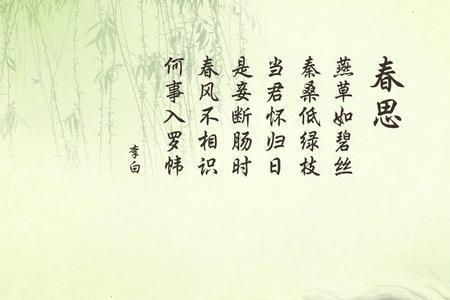 春思
燕草如碧丝
秦桑低绿枝
当君怀归日
是妾断肠时
春风不相识
何事入罗帏
李白